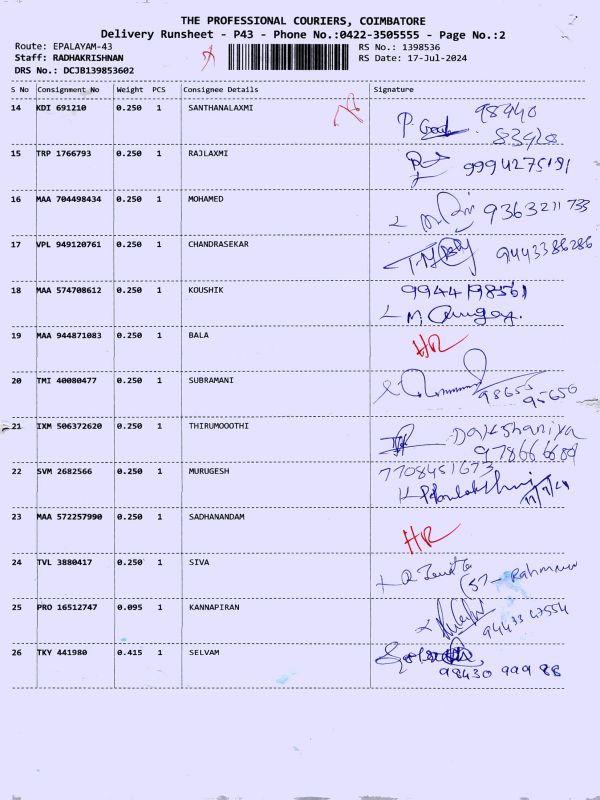 THE PROFESSIONAL COURIERS, COIMBATORE
Delivery Runsheet - P43 - Phone No.:0422-3505555 - Page No.:2
Route: EPALAYAM-43 RS No.: 1398536
Staff: RADHAKRISHNAN RS Date: 17-Jul-2024
DRS No.: DCJB139853602
S No Consignment No Weight PCS Consignee Details Signature
14 KDI 691210 0.250 1 SANTHANALAXMI 98940
83428
15 TRP 1766793 0.250 1 RAJLAXMI 9994275191
16 MAA 704498434 0.250 1 MOHAMED 9363211733
17 VPL 949120761 0.250 1 CHANDRASEKAR 9443386286
18 MAA 574708612 0.250 1 KOUSHIK 9944198561
19 MAA 944871083 0.250 1 BALA HR
20 TMI 40080477 0.250 1 SUBRAMANI 98655
95656
21 IXM 506372620 0.250 1 THIRUMOOOTHI Dakshaniya
9786666
22 SVM 2682566 0.250 1 MURUGESH 7708451673
17/7/24
23 MAA 572257990 0.250 1 SADHANANDAM HR
24 TVL 3880417 0.250 1 SIVA Rahman
25 PRO 16512747 0.095 1 KANNAPIRAN 9443347554
26 TKY 441980 0.415 1 SELVAM
98430 999 88